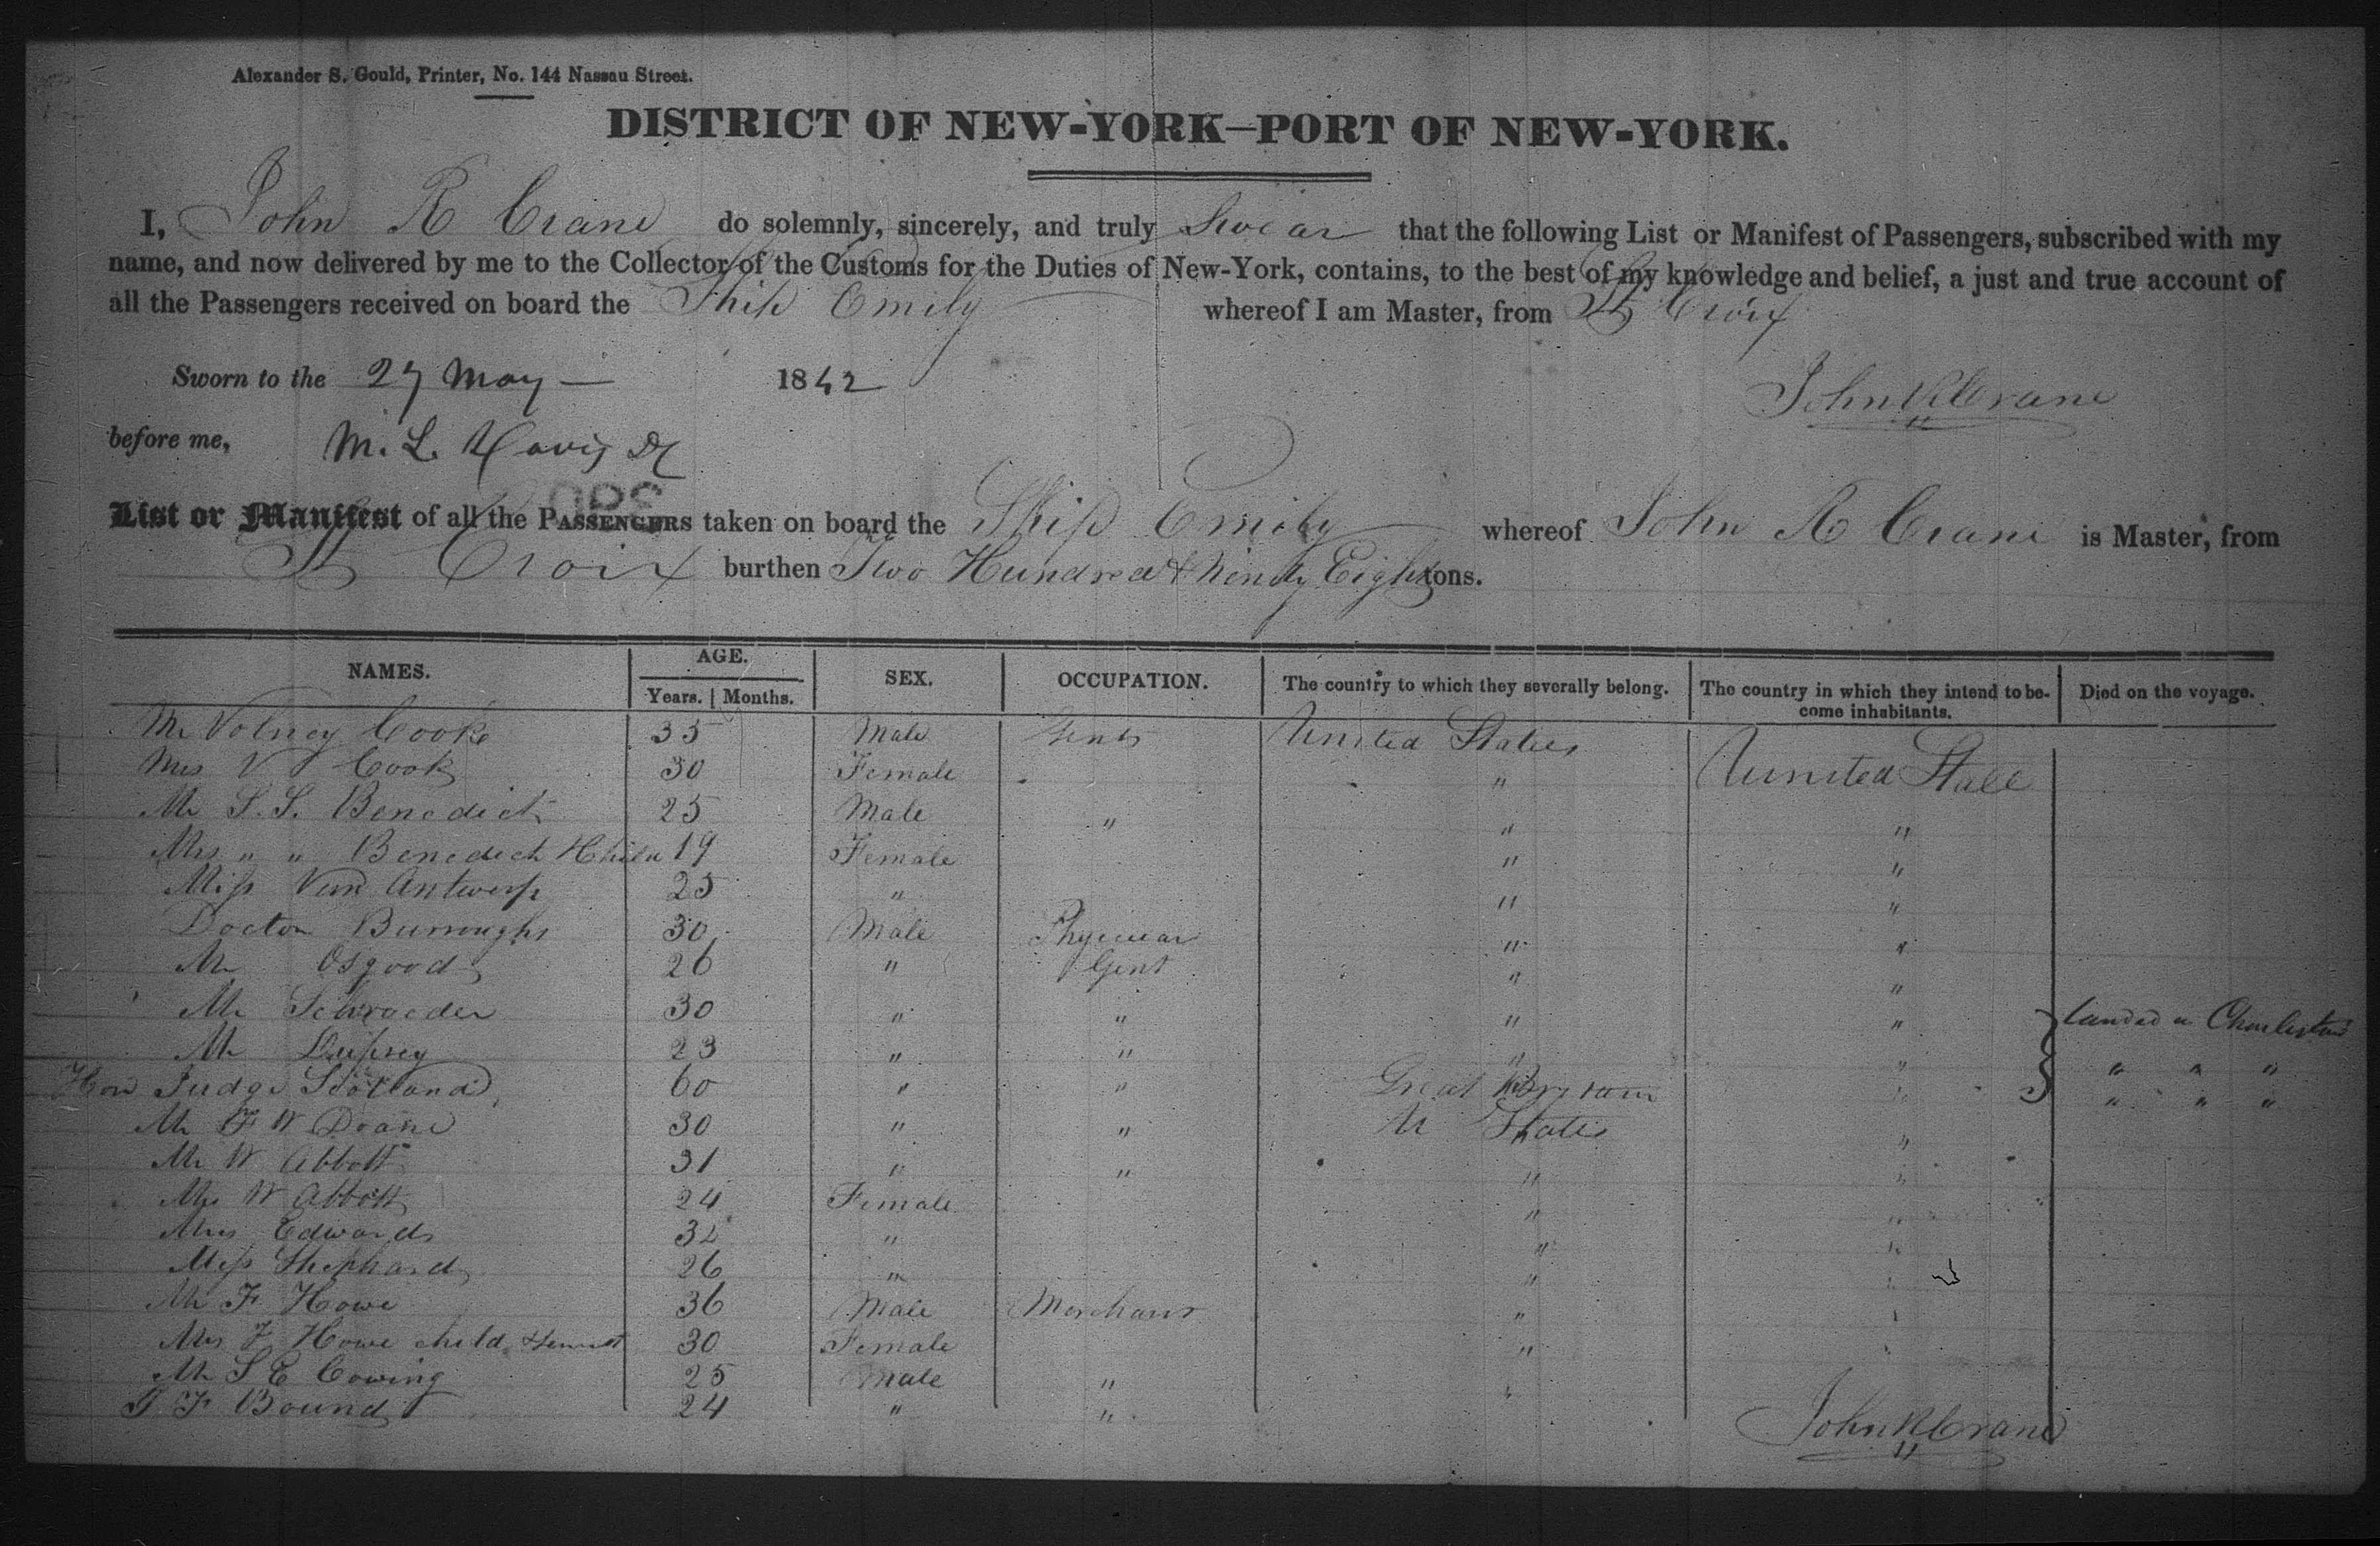 Alexander S. Gould, Printer, No. 144 Nassau Street.
DISTRICT OF NEW-YORK—PORT OF NEW-YORK.
I, John R Crane do solemnly, sincerely, and truly Swear that the following List or Manifest of Passengers, subscribed with my
name, and now delivered by me to the Collector of the Customs for the Duties of New-York, contains, to the best of my knowledge and belief, a just and true account of
all the Passengers received on board the Ship Emily whereof I am Master, from St Croix
Sworn to the 27 May — 1842 John R Crane
before me, M. L. Davis
List or Manifest of all the PASSENGERS taken on board the Ship Emily whereof John R Crane is Master, from
St Croix burthen Two Hundred & Ninety Eight tons.
NAMES. AGE. SEX. OCCUPATION. The country to which they severally belong. The country in which they intend to be- Died on the voyage.
Years. Months. come inhabitants.
Mr Volney Cooke 35 Male Gents United States
Mrs V Cook 30 Female " United State
Mr S. S. Benedict 25 Male " " "
Mrs " " Benedict 19 Female " "
Miss Van Antwerp 25 " " "
Doctor Burroughs 30 Male Physician " "
Mr Osgood 26 " Gent " "
Mr Schroeder 30 " " " " landed a Charleston
Mr 23 " " " " " " "
Hon Judge Scotland 60 " " Great Brytain " " " "
Mr F W Doane 30 " " U States "
Mr W Abbott 31 " " " "
Mrs W Abbott 24 Female " "
Mrs Edwards 32 " " "
Miss Shephard 26 " " "
Mr F Howe 36 Male Merchant " "
Mrs F Howe child 30 Female " "
Mr S E Cowing 25 Male " "
F Bound 24 " "
John R Crane